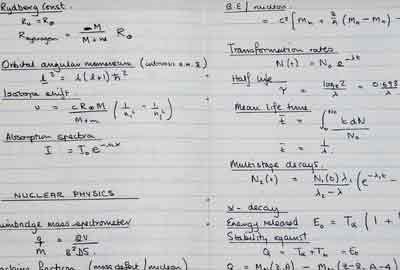 Rydberg Const.
R₀ = R∞
R hydrogen = M / M+m R∞
Orbital angular momentum
l² = l(l+1)ħ²
Isotope shift.
ν = cR∞M / M+m (1/n₁² − 1/n₂²)
Absorption spectra
I = I₀e
NUCLEAR PHYSICS
mass spectrometer
q/m = 2V / B²DS
fraction (mass defect / nucleon)
B.E / nucleon
= c² [Mn + Z/A (MH − Mn) −
Transformation rates
N(t) = N₀ e^−λt
Half life
τ = loge2 / λ = 0.693
Mean life time
t̄ = ∫ t dN / N₀
t̄ = 1/λ
Multistage decays.
N₂(t) = N₁(0)λ₁ / λ₂ − λ₁ (e^−λ₁t −
α - decay
Energy released E₀ = Tα (1 +
Stability against
Q = Tα + Tb = E₀